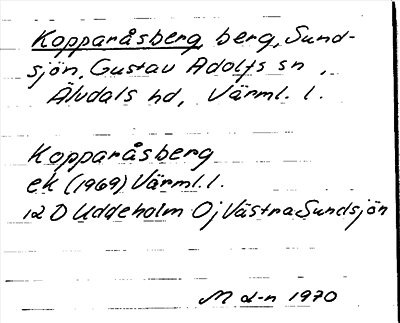 Kopparåsberg, berg, Sund-
sjön, Gustav Adolfs sn,
Älvdals hd, Värml. l.
Kopparåsberg
ek (1969) Värml. l.
12 D Uddeholm Oj Västra Sundsjön
M d-n 1970